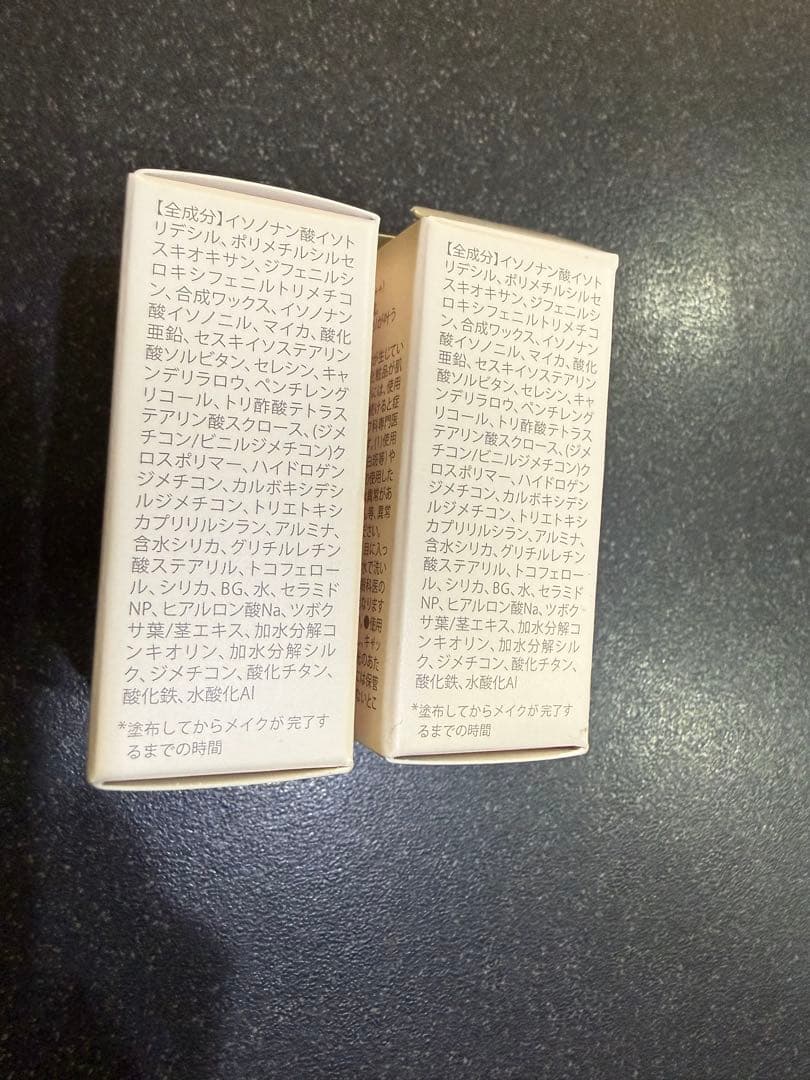 【全成分】イソノナン酸イソト
リデシル、ポリメチルシルセ
スキオキサン、ジフェニルシ
ロキシフェニルトリメチコ
ン、合成ワックス、イソノナン
酸イソノニル、マイカ、酸化
亜鉛、セスキイソステアリン
酸ソルビタン、セレシン、キャ
ンデリラロウ、ペンチレング
リコール、トリ酢酸テトラス
テアリン酸スクロース、(ジメ
チコン/ビニルジメチコン)ク
ロスポリマー、ハイドロゲン
ジメチコン、カルボキシデシ
ルジメチコン、トリエトキシ
カプリリルシラン、アルミナ、
含水シリカ、グリチルレチン
酸ステアリル、トコフェロー
ル、シリカ、BG、水、セラミド
NP、ヒアルロン酸Na、ツボク
サ葉/茎エキス、加水分解コ
ンキオリン、加水分解シル
ク、ジメチコン、酸化チタン、
酸化鉄、水酸化Al
*塗布してからメイクが完了す
るまでの時間
が生じてい
粧品が肌
は、使用
続けると症
科専門医
(1)使用
白斑等)や
使用した
異常があ
等、異常
ださい。
目に入っ
水で洗い
眼科医の
なります
●使用
キャッ
のあた
は保管
ないとこ
【全成分】イソノナン酸イソト
リデシル、ポリメチルシルセ
スキオキサン、ジフェニルシ
ロキシフェニルトリメチコ
ン、合成ワックス、イソノナン
酸イソノニル、マイカ、酸化
亜鉛、セスキイソステアリン
酸ソルビタン、セレシン、キャ
ンデリラロウ、ペンチレング
リコール、トリ酢酸テトラス
テアリン酸スクロース、(ジメ
チコン/ビニルジメチコン)ク
ロスポリマー、ハイドロゲン
ジメチコン、カルボキシデシ
ルジメチコン、トリエトキシ
カプリリルシラン、アルミナ、
含水シリカ、グリチルレチン
酸ステアリル、トコフェロー
ル、シリカ、BG、水、セラミド
NP、ヒアルロン酸Na、ツボク
サ葉/茎エキス、加水分解コ
ンキオリン、加水分解シル
ク、ジメチコン、酸化チタン、
酸化鉄、水酸化Al
*塗布してからメイクが完了す
るまでの時間